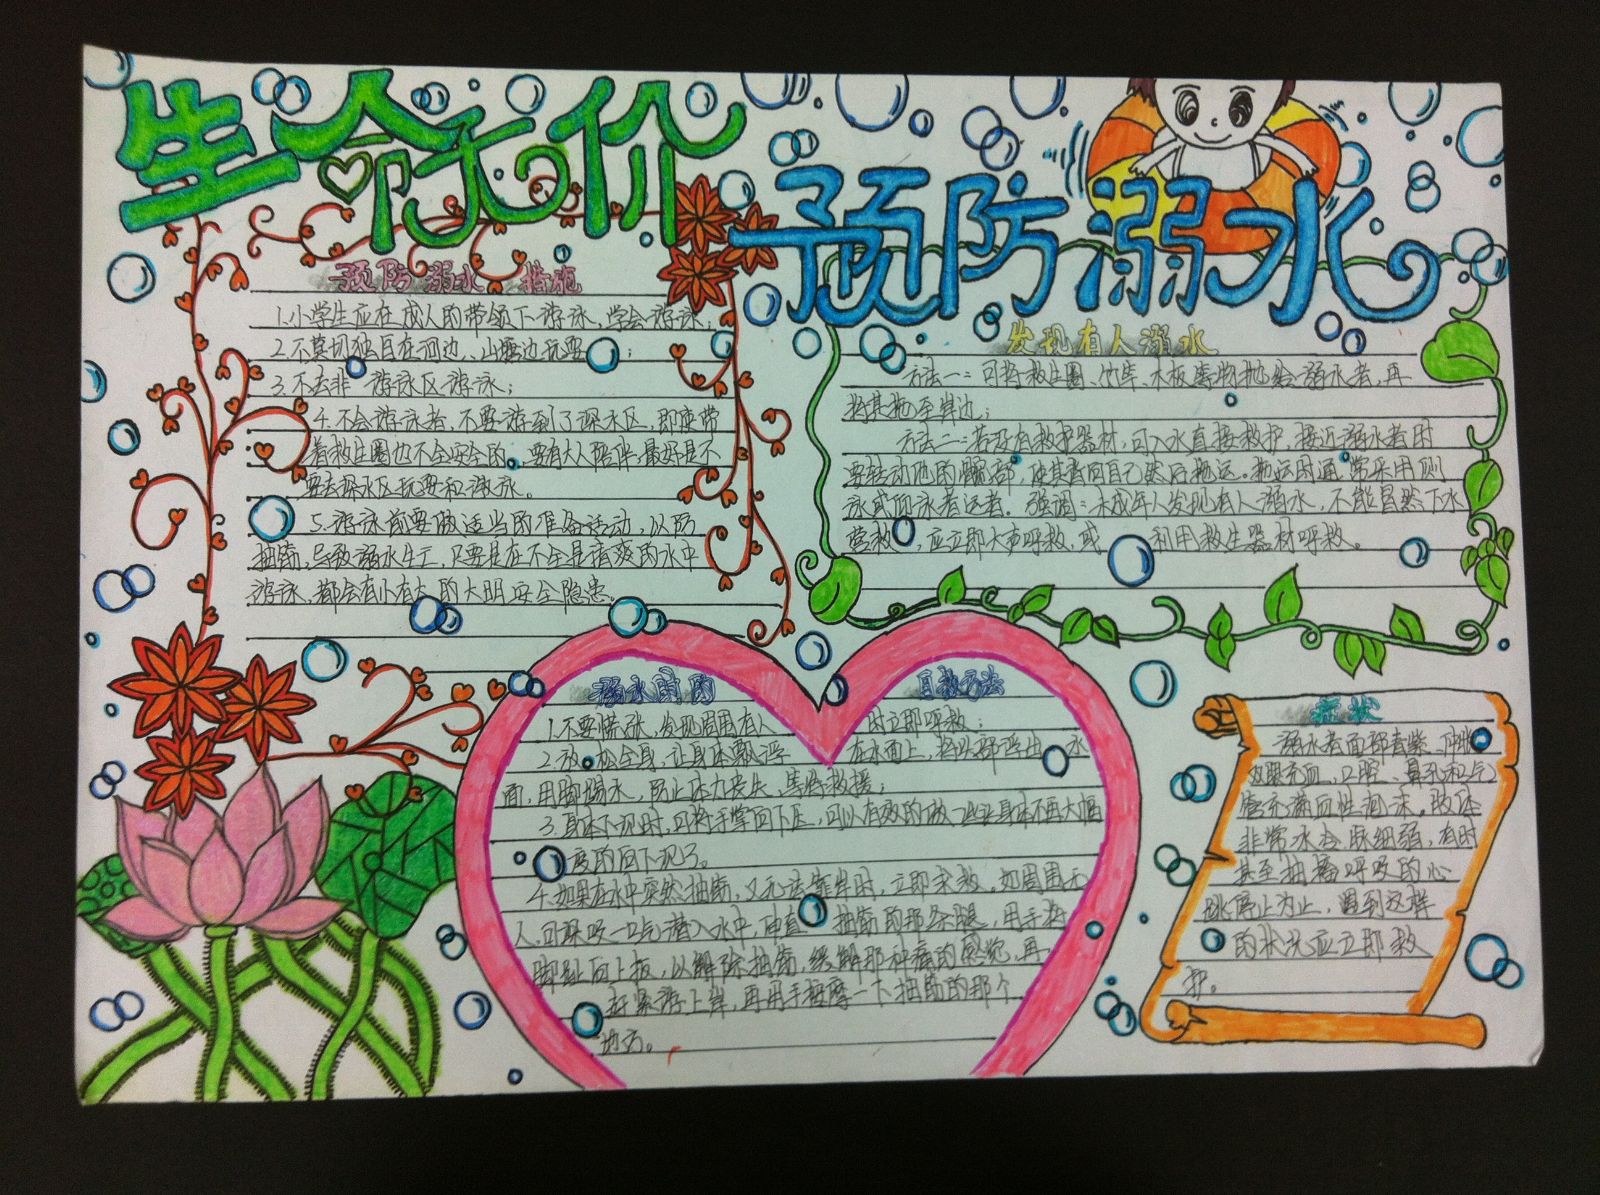 生命无价
预防溺水
预防溺水 措施
1.小学生应在成人的带领下游泳、学会游泳;
2.不莫切独自在河边、山塘边玩耍;
3.不去非 游泳区游泳;
4.不会游泳者,不要游到了深水区,即使带
着救生圈也不会安全的。要有大人陪伴,最好是不
要去深水区玩耍和游泳。
5.游泳前要做适当的准备活动,以防
抽筋,导致溺水生亡,只要是在不全是清爽的水中
游泳,都会有小有大的大明安全隐患。
发现有人溺水
方法一:可将救生圈、竹竿、木板等物抛给溺水者,再
将其拖至岸边;
方法二:若没有救护器材,可入水直接救护,接近溺水者时
要转动他的髋部,使其背向自己然后拖运。拖运时通常采用侧
泳或仰泳者运者。强调:未成年人发现有人溺水,不能冒然下水
营救,应立即大声呼救,或 利用救生器材呼救。
溺水时的 自救方法
1.不要慌张,发现周围有人 时立即呼救;
2.放 松全身,让身体飘浮 在水面上,将头部浮出 水
面,用脚踢水,防止体力丧失,等待救援;
3.身体下沉时,可将手掌向下压,可以有效的做 让身体不再大幅
度的向下沉了。
4.如果在水中突然抽筋,又无法靠岸时,立即求救。如周围无
人,可深吸一口气潜入水中,伸直 抽筋的那条腿,用手将
脚趾向上扳,以解除抽筋,缓解那种痛的感觉,再
赶紧游上岸,再用手按摩一下抽筋的那个
地方。
症状
溺水者面部青紫、肿胀
双眼充血,口腔、鼻孔和气
管充满血性泡沫。肢体
非常冰冷 脉细弱,有时
甚至抽搐呼吸的心
跳停止为止,遇到这样
的状况应立即救
护。